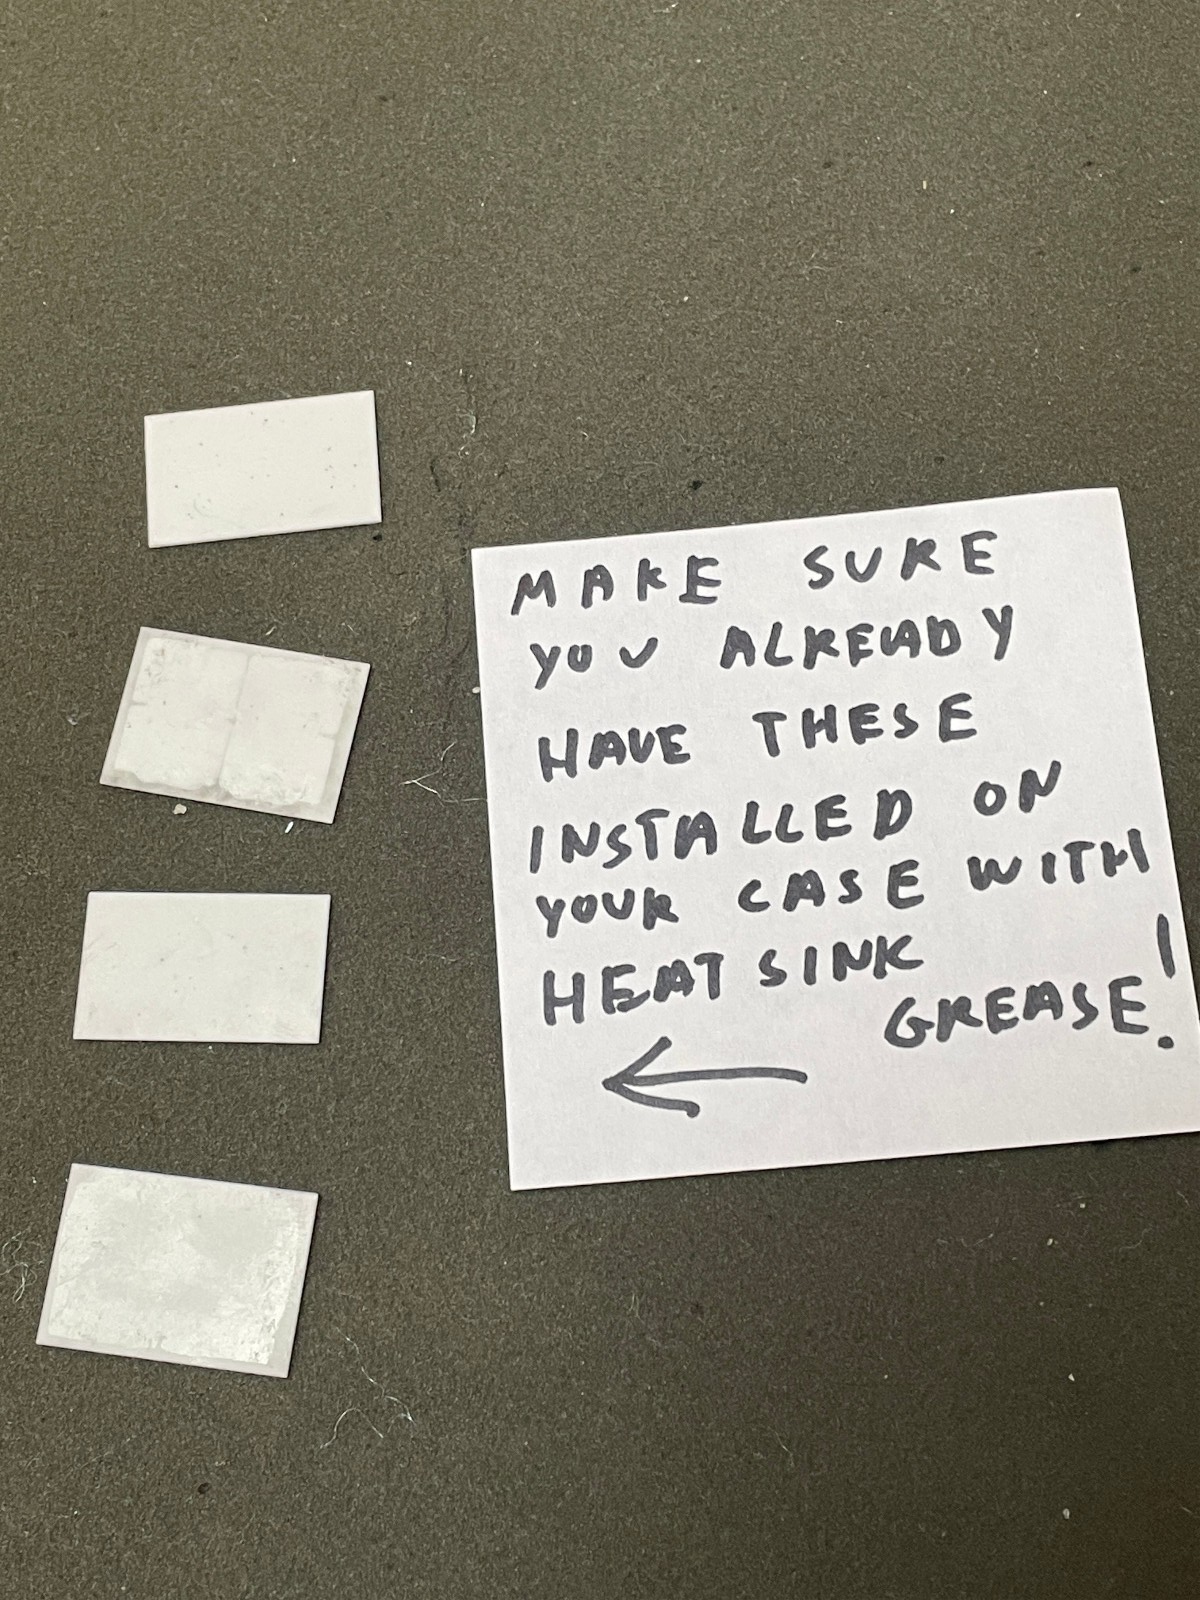 MAKE SURE
YOU ALREADY
HAVE THESE
INSTALLED ON
YOUR CASE WITH
HEATSINK
GREASE!